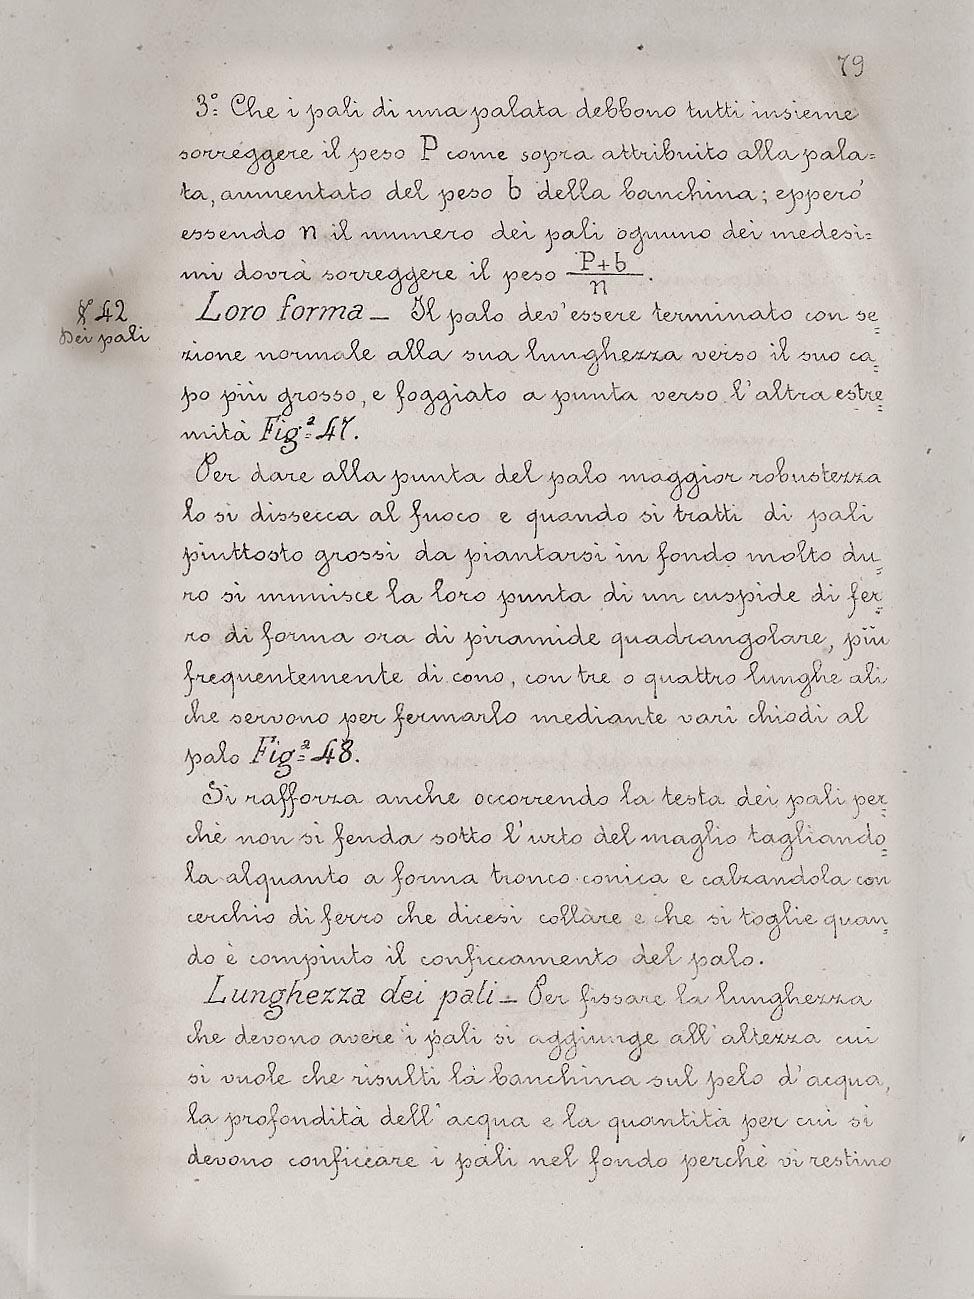 79
3°: Che i pali di una palata debbono tutti insieme
sorreggere il peso P come sopra attribuito alla pala=
ta, aumentato del peso b della banchina; epperò
essendo n il numero dei pali ognuno dei medesi=
mi dovrà sorreggere il peso P+b/n.
§ 42
Dei pali
Loro forma _ Il palo dev'essere terminato con se=
zione normale alla sua lunghezza verso il suo ca=
po più grosso, e foggiato a punta verso l'altra estre=
mità Fig.ª 47.
Per dare alla punta del palo maggior robustezza
lo si dissecca al fuoco e quando si tratti di pali
piuttosto grossi da piantarsi in fondo molto du=
ro si munisce la loro punta di un cuspide di fer=
ro di forma ora di piramide quadrangolare, più
frequentemente di cono, con tre o quattro lunghe ali
che servono per fermarlo mediante vari chiodi al
palo Fig.ª 48.
Si rafforza anche occorrendo la testa dei pali per=
chè non si fenda sotto l'urto del maglio tagliando=
la alquanto a forma tronco-conica e calzandola con
cerchio di ferro che dicesi collare e che si toglie quan=
do è compiuto il conficcamento del palo.
Lunghezza dei pali _ Per fissare la lunghezza
che devono avere i pali si aggiunge all'altezza cui
si vuole che risulti la banchina sul pelo d'acqua,
la profondità dell'acqua e la quantità per cui si
devono conficcare i pali nel fondo perchè vi restino